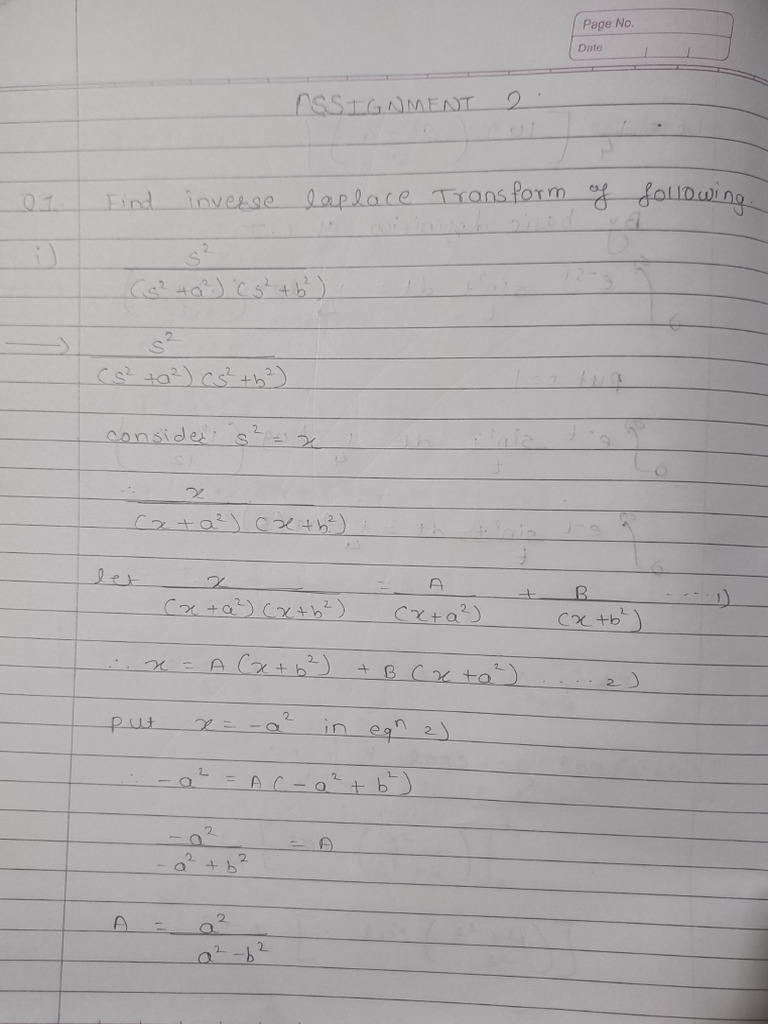 Page No.
Date
ASSIGNMENT 2.
Q1. Find inverse laplace Transform of following.
i) s²
(s² + a²) (s² + b²)
→ s²
(s² + a²) (s² + b²)
consider s² = x
∴ x
(x + a²) (x + b²)
let x = A + B ....1)
(x + a²) (x + b²) (x + a²) (x + b²)
∴ x = A (x + b²) + B (x + a²) ....2)
put x = -a² in eqⁿ 2)
∴ -a² = A (-a² + b²)
-a² = A
-a² + b²
A = a²
a² - b²